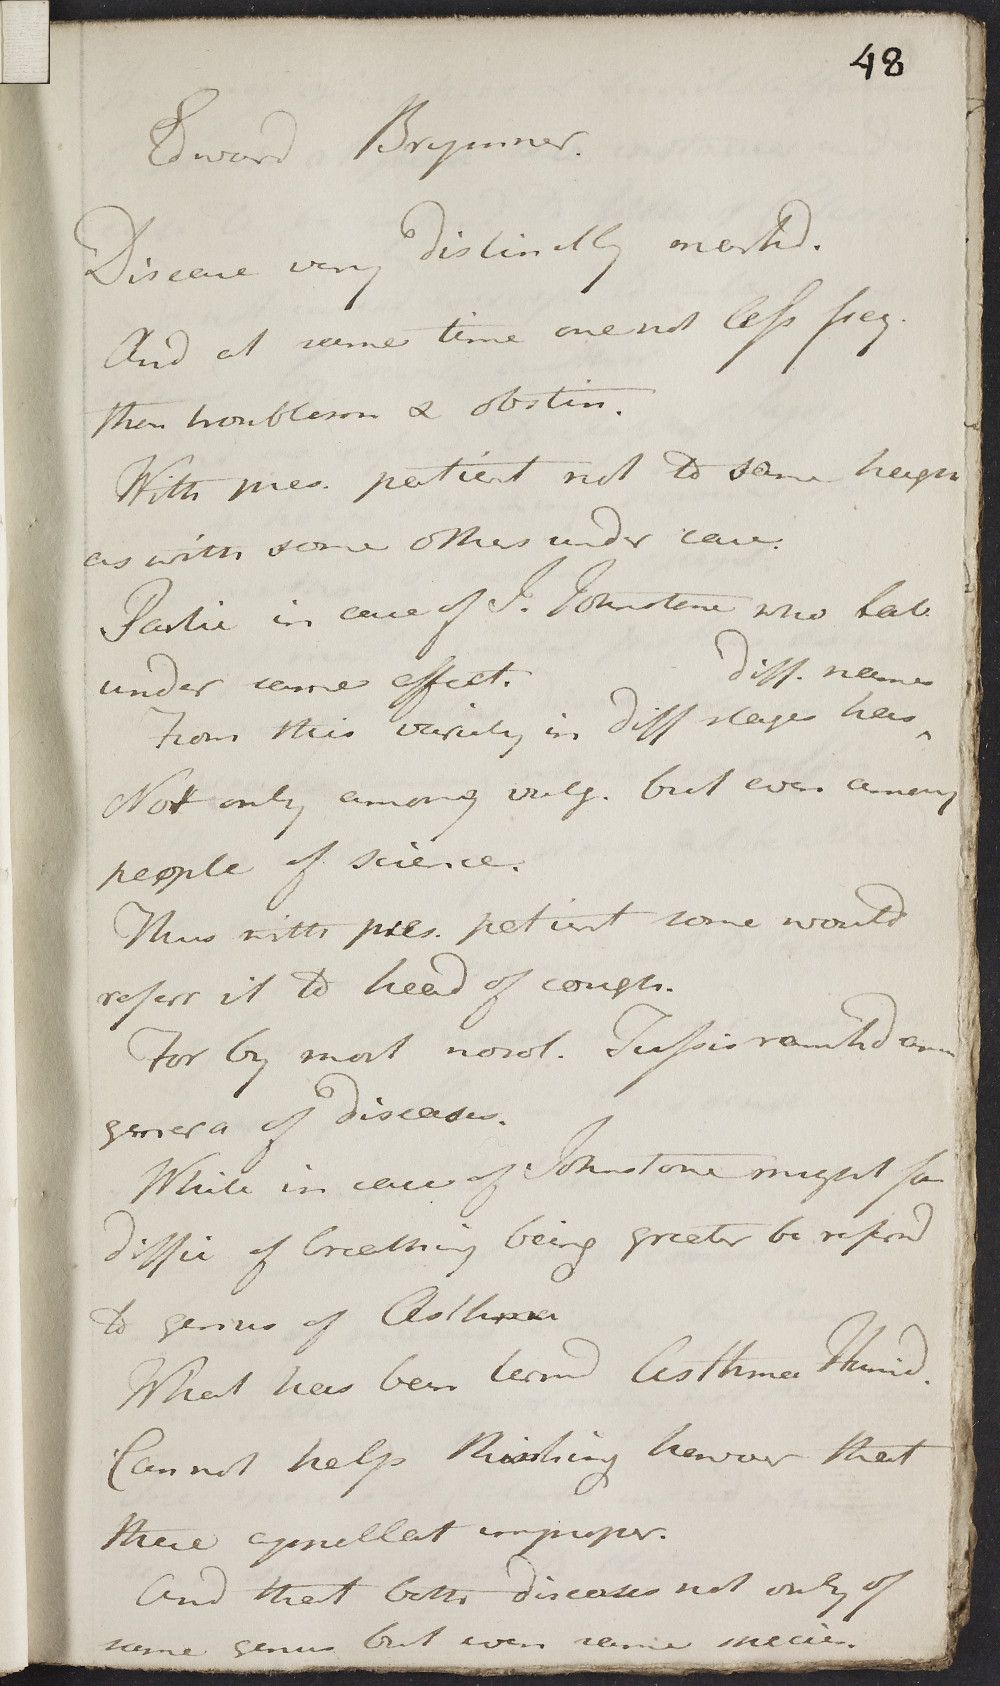 48
Edward Brymner.
Disease very distinctly markd.
And at same time one not less freq.
then troublesom & obstin.
With pres. patient not to same heigh
as with some others under care.
Partic in case of J. Johnstone who lab.
under same affect.
diff. names
From this variety in diff stages has ^
Not only among vulg. but even among
people of science.
Thus with pres. patient some would
referr it to head of cough.
For by most nosol. Tussis rankd am
genera of diseases.
While in case of Johnstone might fr
diffic of breathing being greater be referd
to genus of Asthma
What has been termd Asthma Humid.
Cannot help thinking however that
these appellat improper.
And that both diseases not only of
same genus but even same species.